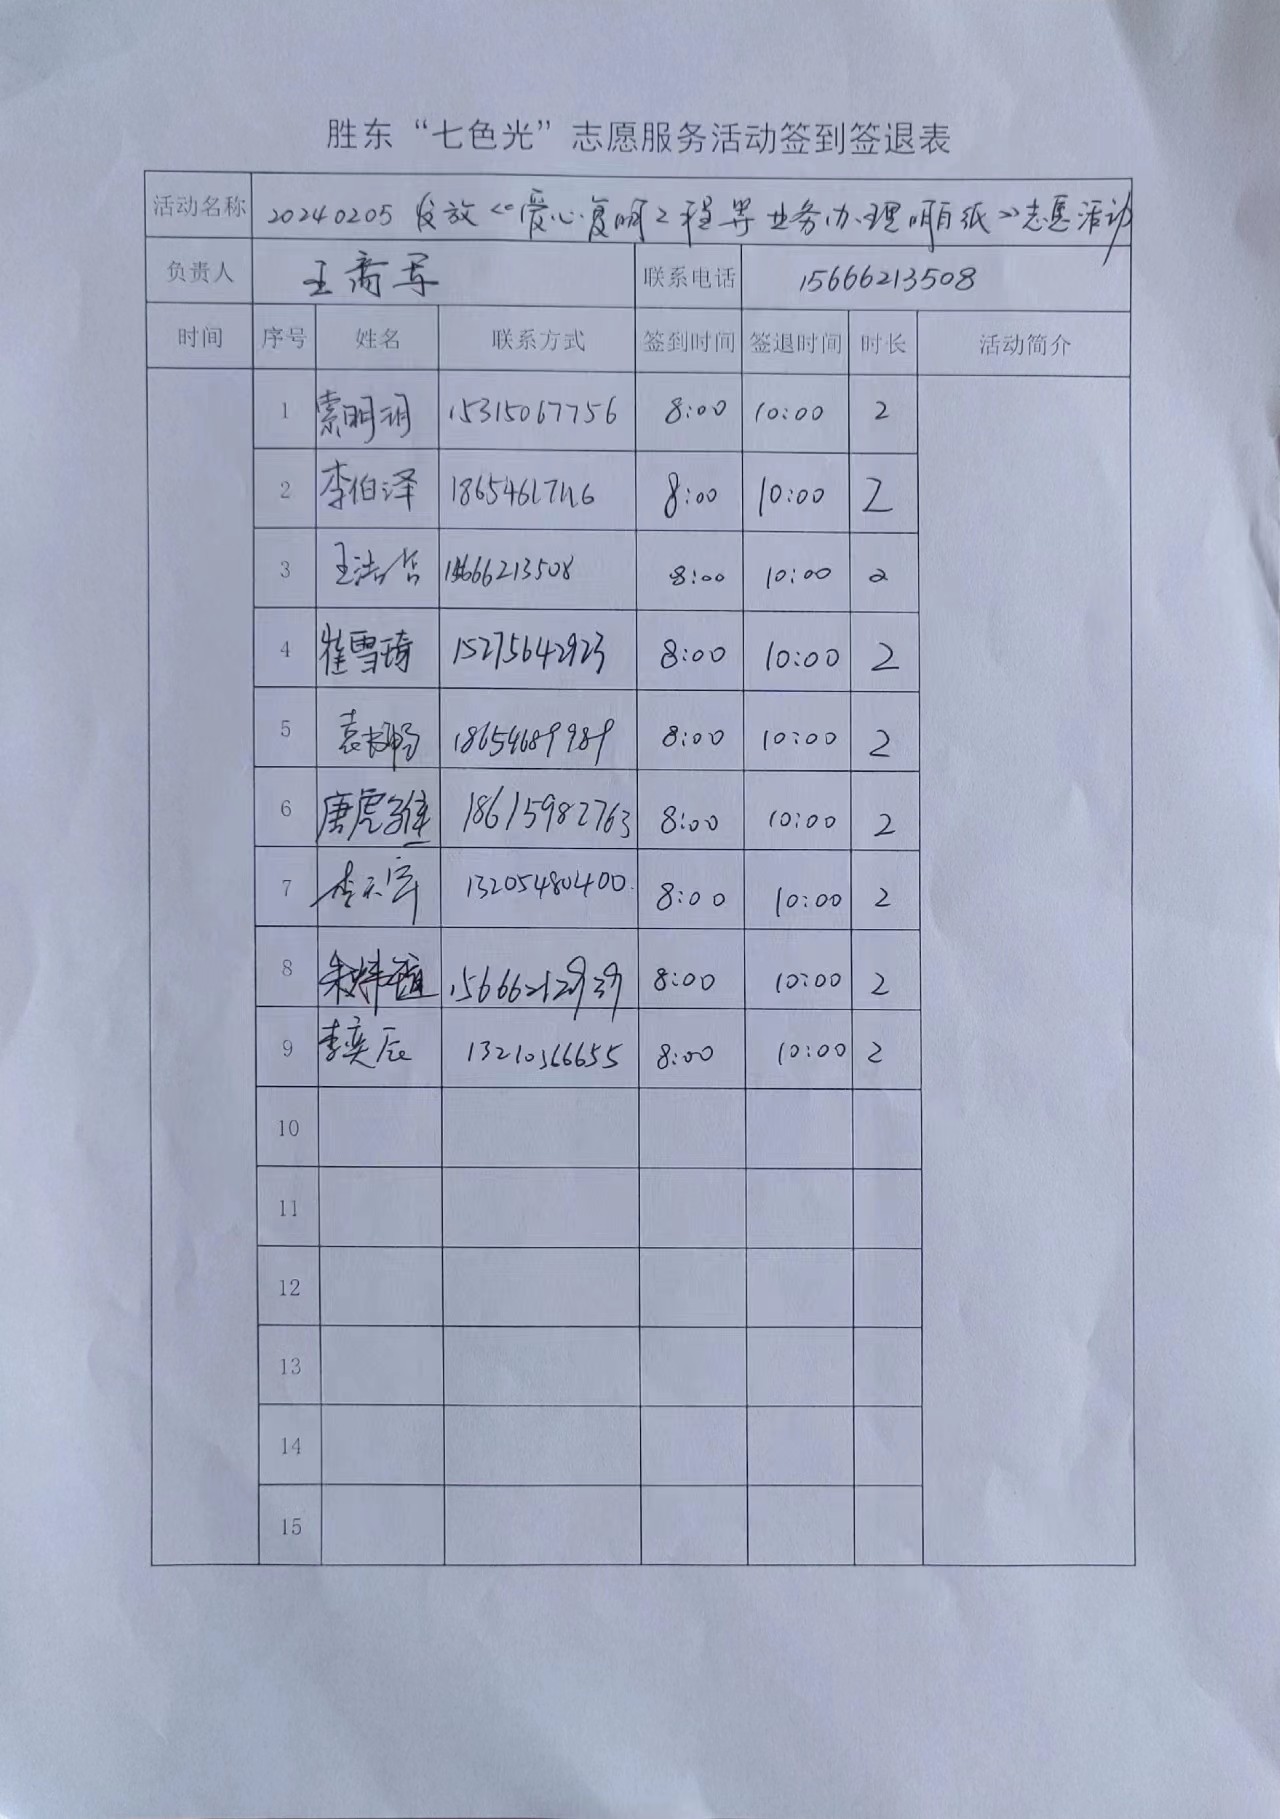 胜东“七色光”志愿服务活动签到签退表
活动名称 20240205 发放《爱心复明工程等业务办理明白纸》志愿活动
负责人 王 军 联系电话 15666213508
时间 序号 姓名 联系方式 签到时间 签退时间 时长 活动简介
1 索明羽 15315067756 8:00 10:00 2
2 李伯泽 8:00 10:00 2
3 王浩 15666213508 8:00 10:00 2
4 崔雪琦 15275642923 8:00 10:00 2
5 袁 18654689989 8:00 10:00 2
6 唐虎 18615982763 8:00 10:00 2
7 李 13205480400 8:00 10:00 2
8 朱 15666212939 8:00 10:00 2
9 李奕辰 13210366655 8:00 10:00 2
10
11
12
13
14
15